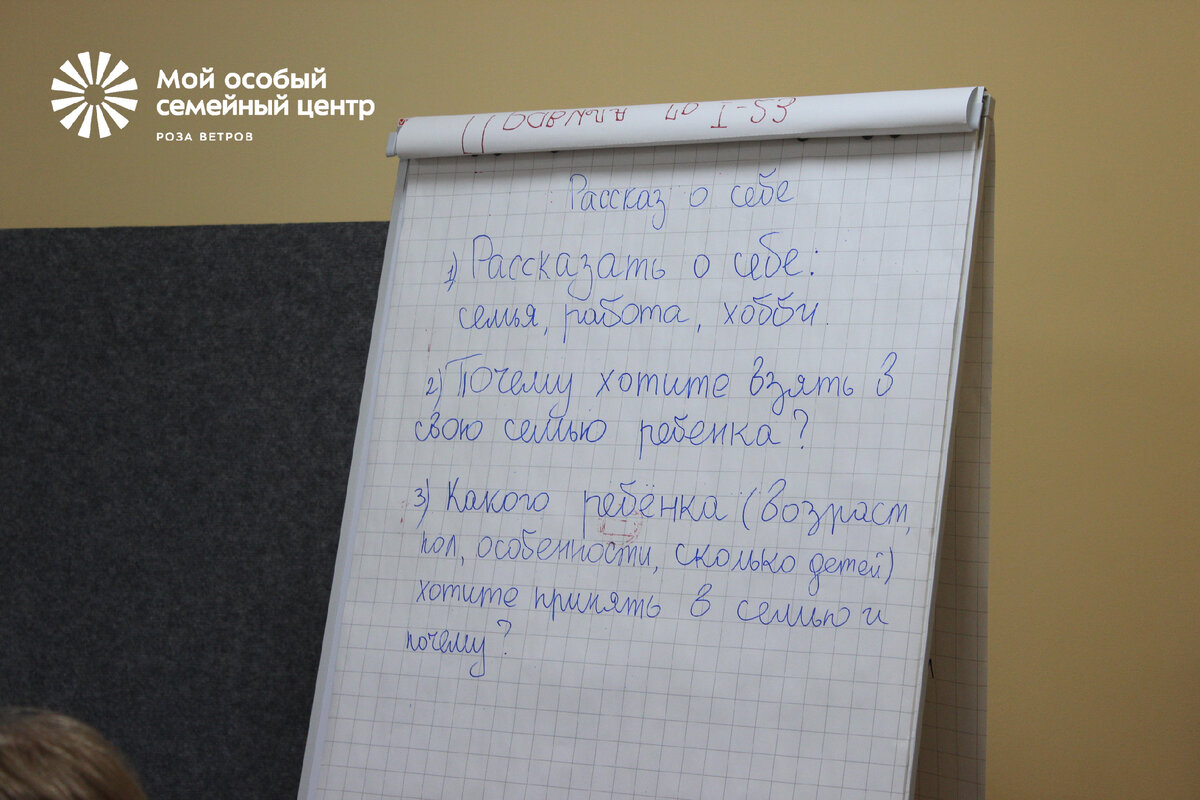 Мой особый
семейный центр
РОЗА ВЕТРОВ
Рассказ о себе
1) Рассказать о себе:
семья, работа, хобби.
2) Почему хотите взять в
свою семью ребенка?
3) Какого ребёнка (возраст,
пол, особенности, сколько детей)
хотите принять в семью и
почему?